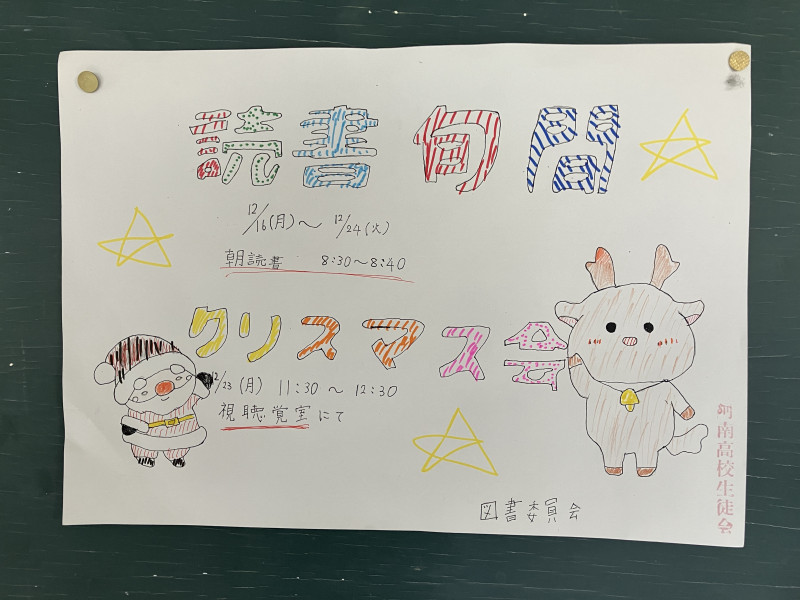 読書旬間
12/16(月)〜 12/24(火)
朝読書 8:30〜8:40
クリスマス会
12/23(月) 11:30 〜 12:30
視聴覚室にて
図書委員会
南高校生徒会